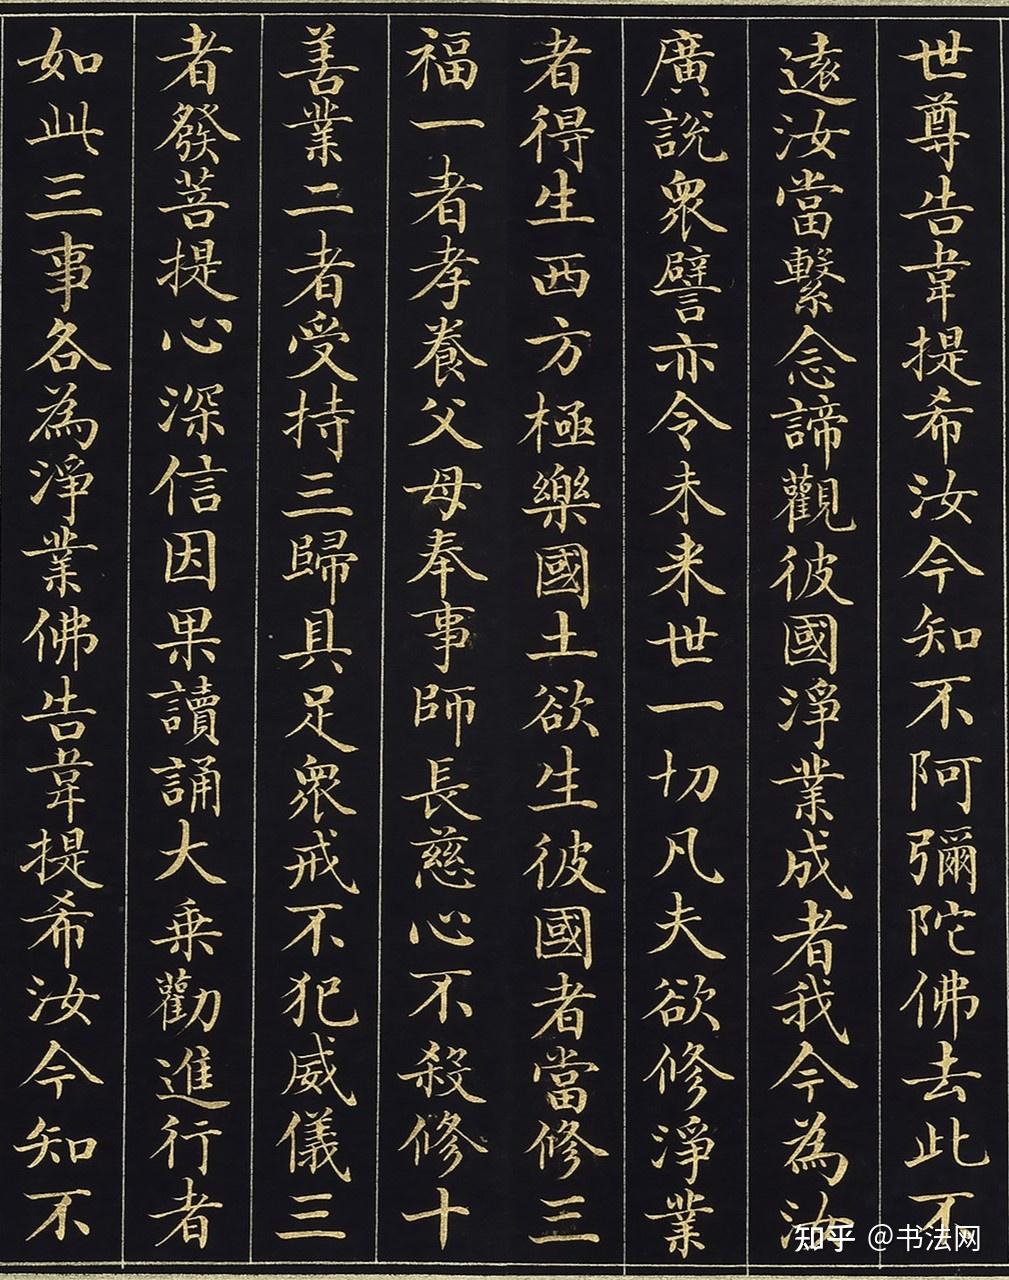 世尊告韋提希汝今知不阿彌陀佛去此不
遠汝當繫念諦觀彼國淨業成者我今為汝
廣說衆譬亦令未来世一切凡夫欲修淨業
者得生西方極樂國土欲生彼國者當修三
福一者孝養父母奉事師長慈心不殺修十
善業二者受持三歸具足衆戒不犯威儀三
者發菩提心深信因果讀誦大乗勸進行者
如此三事各為淨業佛告韋提希汝今知不
知乎 @书法网